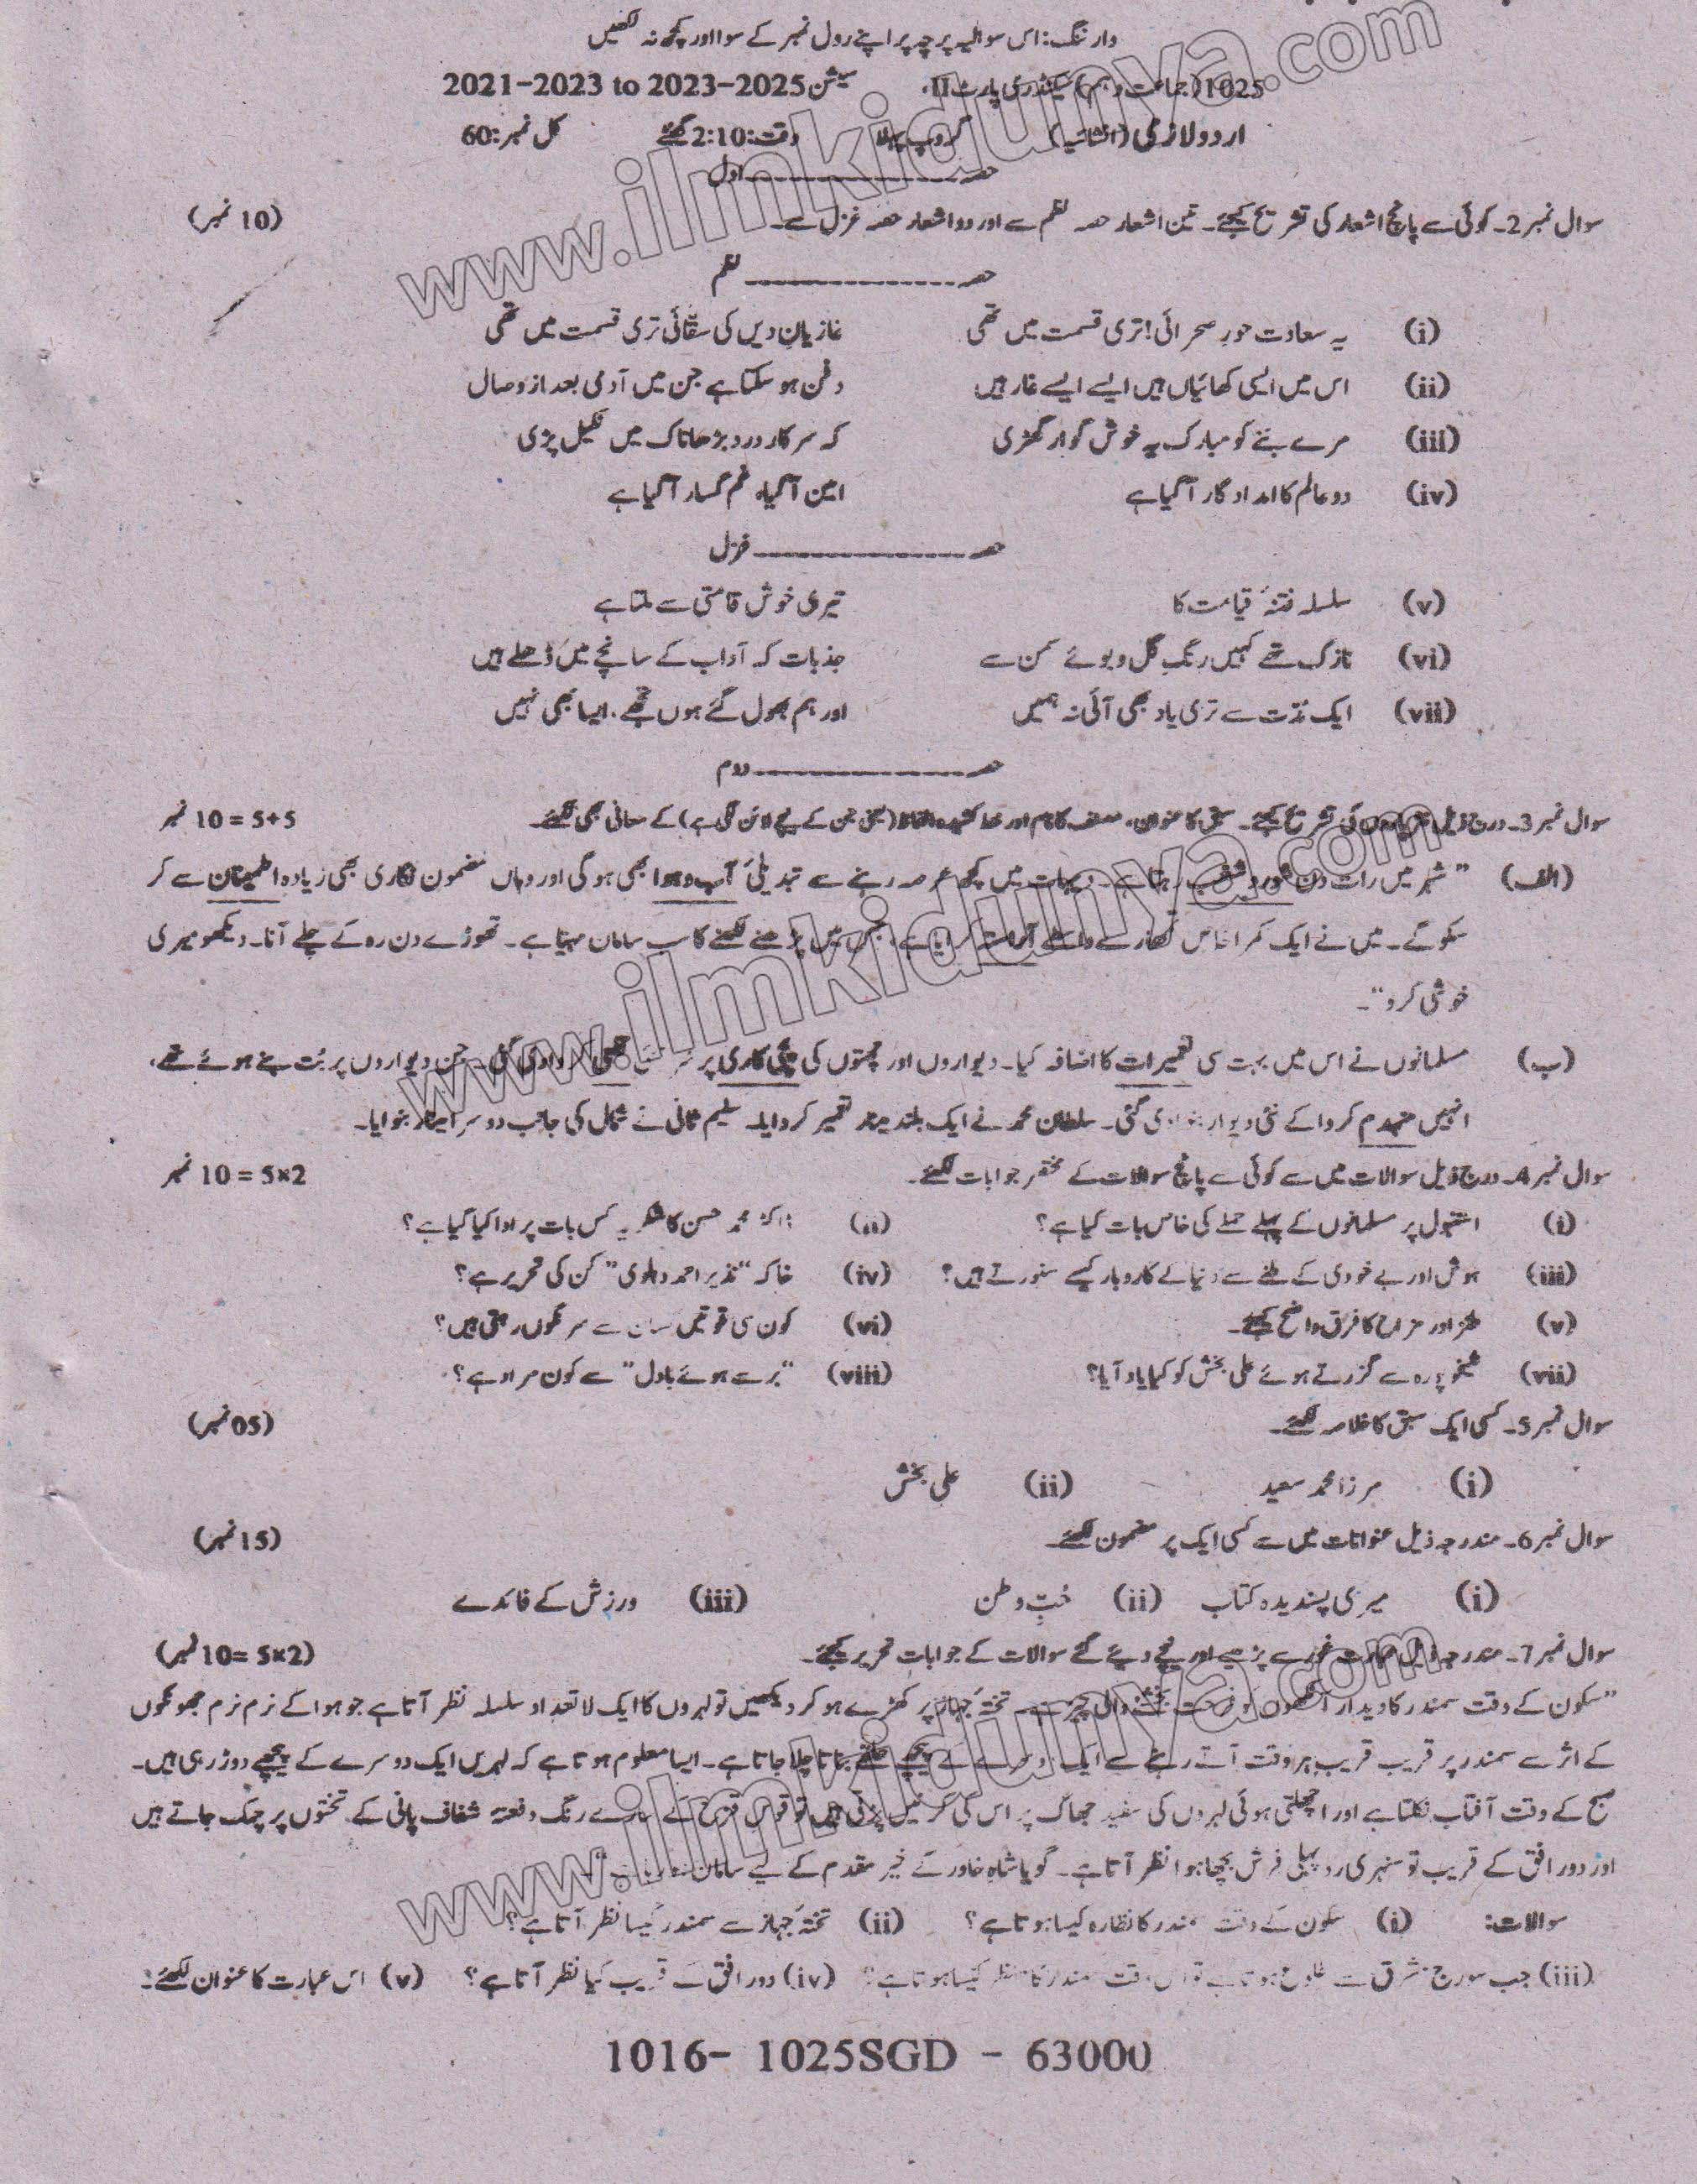 وارننگ: اس سوالیہ پرچہ پر اپنے رول نمبر کے سوا اور کچھ نہ لکھیں
1025 (جماعت دہم) سیکنڈری پارٹ II، سیشن 2021-2023 to 2023-2025
اردو لازمی (انشائیہ) گروپ پہلا وقت: 2:10 گھنٹے کل نمبر: 60
حصہ ---------------- اول
سوال نمبر 2۔ کوئی سے پانچ اشعار کی تشریح کیجئے۔ تین اشعار حصہ نظم سے اور دو اشعار حصہ غزل سے۔ (10 نمبر)
حصہ ---------------- نظم
(i) یہ سعادت حورِ صحرائی! تری قسمت میں تھی غازیانِ دیں کی سقّائی تری قسمت میں تھی
(ii) اس میں ایسی کھائیاں ہیں ایسے ایسے غار ہیں دفن ہو سکتا ہے جن میں آدمی بعد از وصال
(iii) مرے بنے کو مبارک یہ خوش گوار گھڑی کہ سرکار درد بڑھا ناک میں نکیل پڑی
(iv) دو عالم کا امداد گار آ گیا ہے امین آ گیا، غم گسار آ گیا ہے
حصہ ---------------- غزل
(v) سلسلہ فتنۂ قیامت کا تیری خوش قامتی سے ملتا ہے
(vi) نازک تھے کہیں رنگِ گل و بوئے سمن سے جذبات کہ آداب کے سانچے میں ڈھلے ہیں
(vii) ایک مدّت سے تری یاد بھی آئی نہ ہمیں اور ہم بھول گئے ہوں تجھے، ایسا بھی نہیں
حصہ ---------------- دوم
سوال نمبر 3۔ درج ذیل کی تشریح کیجئے۔ سبق کا عنوان، مصنف کا نام اور خط کشیدہ الفاظ (یعنی جن کے نیچے لائن لگی ہے) کے معانی بھی لکھئے۔ 5+5 = 10 نمبر
(الف) "شہر میں رات دن شور و شغب رہتا ہے۔ دیہات میں کچھ عرصہ رہنے سے تبدیلیٔ آب و ہوا بھی ہوگی اور وہاں مضمون نگاری بھی زیادہ اطمینان سے کر
سکو گے۔ میں نے ایک کمرا خاص تمھارے واسطے آراستہ کرایا ہے، جس میں پڑھنے لکھنے کا سب سامان مہیّا ہے۔ تھوڑے دن رہ کے چلے آنا۔ دیکھو میری
خوشی کرو"۔
(ب) مسلمانوں نے اس میں بہت سی تعمیرات کا اضافہ کیا۔ دیواروں اور چھتوں کی پچی کاری پر قلعی کروا دی گئی۔ جن دیواروں پر بُت بنے ہوئے تھے،
انہیں منہدم کروا کے نئی دیوار بنوا دی گئی۔ سلطان محمد نے ایک بلند مینار تعمیر کروایا۔ سلیم ثانی نے شمال کی جانب دوسرا مینار بنوایا۔
سوال نمبر 4۔ درج ذیل سوالات میں سے کوئی سے پانچ سوالات کے مختصر جوابات لکھئے۔ 5×2 = 10 نمبر
(i) استنبول پر مسلمانوں کے پہلے حملے کی خاص بات کیا ہے؟ (ii) ڈاکٹر محمد حسن کا شکریہ کس بات پر ادا کیا گیا ہے؟
(iii) ہوش اور بے خودی کے ملنے سے دنیا کے کاروبار کیسے سنورتے ہیں؟ (iv) خاکہ "نذیر احمد دہلوی" کن کی تحریر ہے؟
(v) طنز اور مزاح کا فرق واضح کیجئے۔ (vi) کون سی قوتیں سے سرنگوں رہتی ہیں؟
(vii) شیخوپورہ سے گزرتے ہوئے علی بخش کو کیا یاد آیا؟ (viii) "برسے ہوئے بادل" سے کون مراد ہے؟
سوال نمبر 5۔ کسی ایک سبق کا خلاصہ لکھئے۔ (05 نمبر)
(i) مرزا محمد سعید (ii) علی بخش
سوال نمبر 6۔ مندرجہ ذیل عنوانات میں سے کسی ایک پر مضمون لکھئے۔ (15 نمبر)
(i) میری پسندیدہ کتاب (ii) حُبِّ وطن (iii) ورزش کے فائدے
سوال نمبر 7۔ مندرجہ ذیل عبارت غور سے پڑھیے اور نیچے دیئے گئے سوالات کے جوابات تحریر کیجئے۔ (5×2 =10 نمبر)
"سکون کے وقت سمندر کا دیدار آنکھوں کو فرحت بخشنے والی چیز ہے۔ تختۂ جہاز پر کھڑے ہو کر دیکھیں تو لہروں کا ایک لاتعداد سلسلہ نظر آتا ہے جو ہوا کے نرم نرم جھونکوں
کے اثر سے سمندر پر قریب قریب ہر وقت آتے رہنے سے ایک دوسرے کے پیچھے حلقے بناتا چلا جاتا ہے۔ ایسا معلوم ہوتا ہے کہ لہریں ایک دوسرے کے پیچھے دوڑ رہی ہیں۔
صبح کے وقت آفتاب نکلتا ہے اور اچھلتی ہوئی لہروں کی سفید جھاگ پر اس کی کرنیں پڑتی ہیں تو قوس قزح کے سارے رنگ دفعتہ شفاف پانی کے تختوں پر چمک جاتے ہیں
اور دور افق کے قریب تو سنہری روپہلی فرش بچھا ہوا نظر آتا ہے۔ گویا شاہِ خاور کے خیر مقدم کے لیے سامان
سوالات: (i) سکون کے وقت سمندر کا نظارہ کیسا ہوتا ہے؟ (ii) تختۂ جہاز سے سمندر کیسا نظر آتا ہے؟
(iii) جب سورج مشرق سے طلوع ہوتا ہے تو اس وقت سمندر کا منظر کیسا ہوتا ہے؟ (iv) دور افق کے قریب کیا نظر آتا ہے؟ (v) اس عبارت کا عنوان لکھئے۔
1016- 1025SGD - 63000
www.ilmkidunya.com
www.ilmkidunya.com
www.ilmkidunya.com